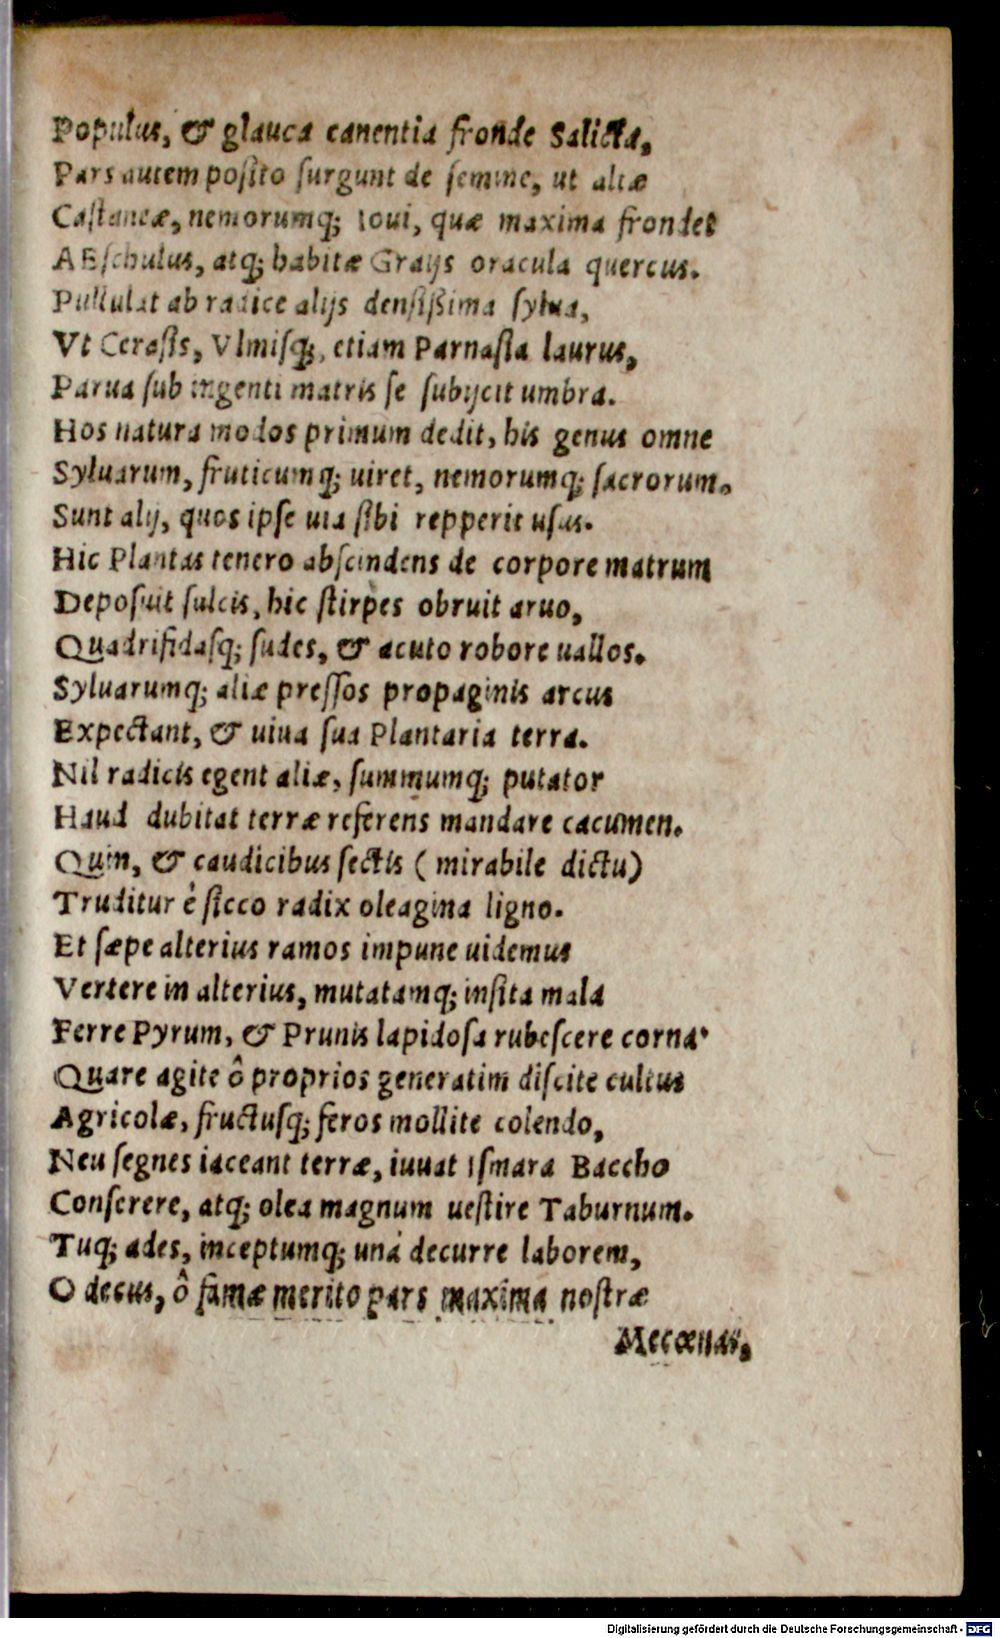 Populus, & glauca canentia fronde Salicta,
Pars autem posito surgunt de semine, ut altæ
Castaneæ, nemorumq; Ioui, quæ maxima frondet
AEschulus, atq; habitæ Graijs oracula quercus.
Pullulat ab radice alijs densißima sylua,
Vt Cerasis, Vlmisq;, etiam Parnasia laurus,
Parua sub ingenti matris se subijcit umbra.
Hos natura modos primum dedit, his genus omne
Syluarum, fruticumq; uiret, nemorumq; sacrorum.
Sunt alij, quos ipse uia sibi repperit usus.
Hic Plantas tenero abscindens de corpore matrum
Deposuit sulcis, hic stirpes obruit aruo,
Quadrifidasq; sudes, & acuto robore uallos.
Syluarumq; aliæ pressos propaginis arcus
Expectant, & uiua sua Plantaria terra.
Nil radicis egent aliæ, summumq; putator
Haud dubitat terræ referens mandare cacumen.
Quin, & caudicibus sectis ( mirabile dictu)
Truditur è sicco radix oleagina ligno.
Et sæpe alterius ramos impune uidemus
Vertere in alterius, mutatamq; insita mala
Ferre Pyrum, & Prunis lapidosa rubescere corna.
Quare agite ô proprios generatim discite cultus
Agricolæ, fructusq; feros mollite colendo,
Neu segnes iaceant terræ, iuuat Ismara Baccho
Conserere, atq; olea magnum uestire Taburnum.
Tuq; ades, inceptumq; unà decurre laborem,
O decus, ô famæ merito pars maxima nostræ
Mecœnas,
Digitalisierung gefördert durch die Deutsche Forschungsgemeinschaft - DFG